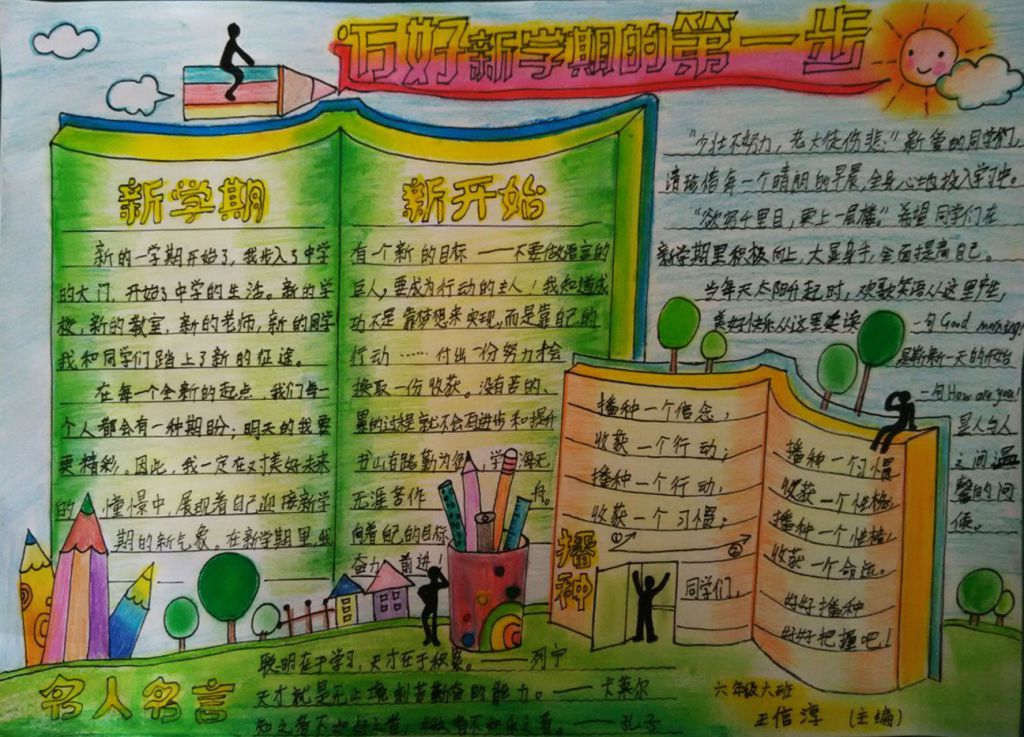 迈好新学期的第一步
新学期
新的一学期开始了,我步入了中学
的大门,开始了中学的生活。新的学
校,新的教室,新的老师,新的同学
我和同学们踏上了新的征途。
在每一个全新的起点,我们每一
个人都会有一种期盼;明天的我要
更精彩。因此,我一定在对美好未来
的憧憬中,展现着自己迎接新学
期的新气象。在新学期里我
新开始
有一个新的目标——不要做语言的
巨人,要成为行动的主人!我知道成
功不是靠梦想来实现,而是靠自己的
行动……付出一份努力才会
换取一份收获。没有苦的、
累的过程就不会有进步和提升
书山有路勤为径,学海无
无涯苦作舟。
向着自己的目标
奋力前进!
"少壮不努力,老大徒伤悲。"新学的同学们,
请珍惜每一个晴朗的早晨,全身心地投入学习中。
"欲穷千里目,更上一层楼。"希望同学们在
新学期里积极向上,大显身手,全面提高自己。
当每天太阳升起时,欢歌笑语从这里产生,
美好快乐从这里建读 一句Good morning!
是崭新一天的开始
一句How are you!
是人与人
之间温
馨的问
候。
播种
播种一个信念,
收获一个行动;
播种一个行动,
收获一个习惯;
同学们,
播种一个习惯
收获一个性格;
播种一个性格,
收获一个命运。
好好播种
好好把握吧!
名人名言
聪明在于学习,天才在于积累。——列宁
天才就是无止境刻苦勤奋的能力。——卡莱尔
知之者不如好之者,好之者不如乐之者。——孔子
六年级六班
王信淳(主编)